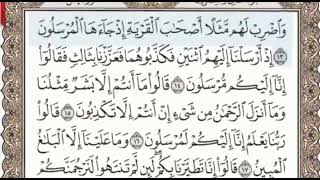 وَاضْرِبْ لَهُم مَّثَلًا أَصْحَابَ الْقَرْيَةِ إِذْ جَاءَهَا الْمُرْسَلُونَ
١٣ إِذْ أَرْسَلْنَا إِلَيْهِمُ اثْنَيْنِ فَكَذَّبُوهُمَا فَعَزَّزْنَا بِثَالِثٍ فَقَالُوا
إِنَّا إِلَيْكُم مُّرْسَلُونَ ١٤ قَالُوا مَا أَنتُمْ إِلَّا بَشَرٌ مِّثْلُنَا
وَمَا أَنزَلَ الرَّحْمَٰنُ مِن شَيْءٍ إِنْ أَنتُمْ إِلَّا تَكْذِبُونَ ١٥ قَالُوا
رَبُّنَا يَعْلَمُ إِنَّا إِلَيْكُمْ لَمُرْسَلُونَ ١٦ وَمَا عَلَيْنَا إِلَّا الْبَلَاغُ
الْمُبِينُ ١٧ قَالُوا إِنَّا تَطَيَّرْنَا بِكُمْ لَئِن لَّمْ تَنتَهُوا لَنَرْجُمَنَّكُمْ